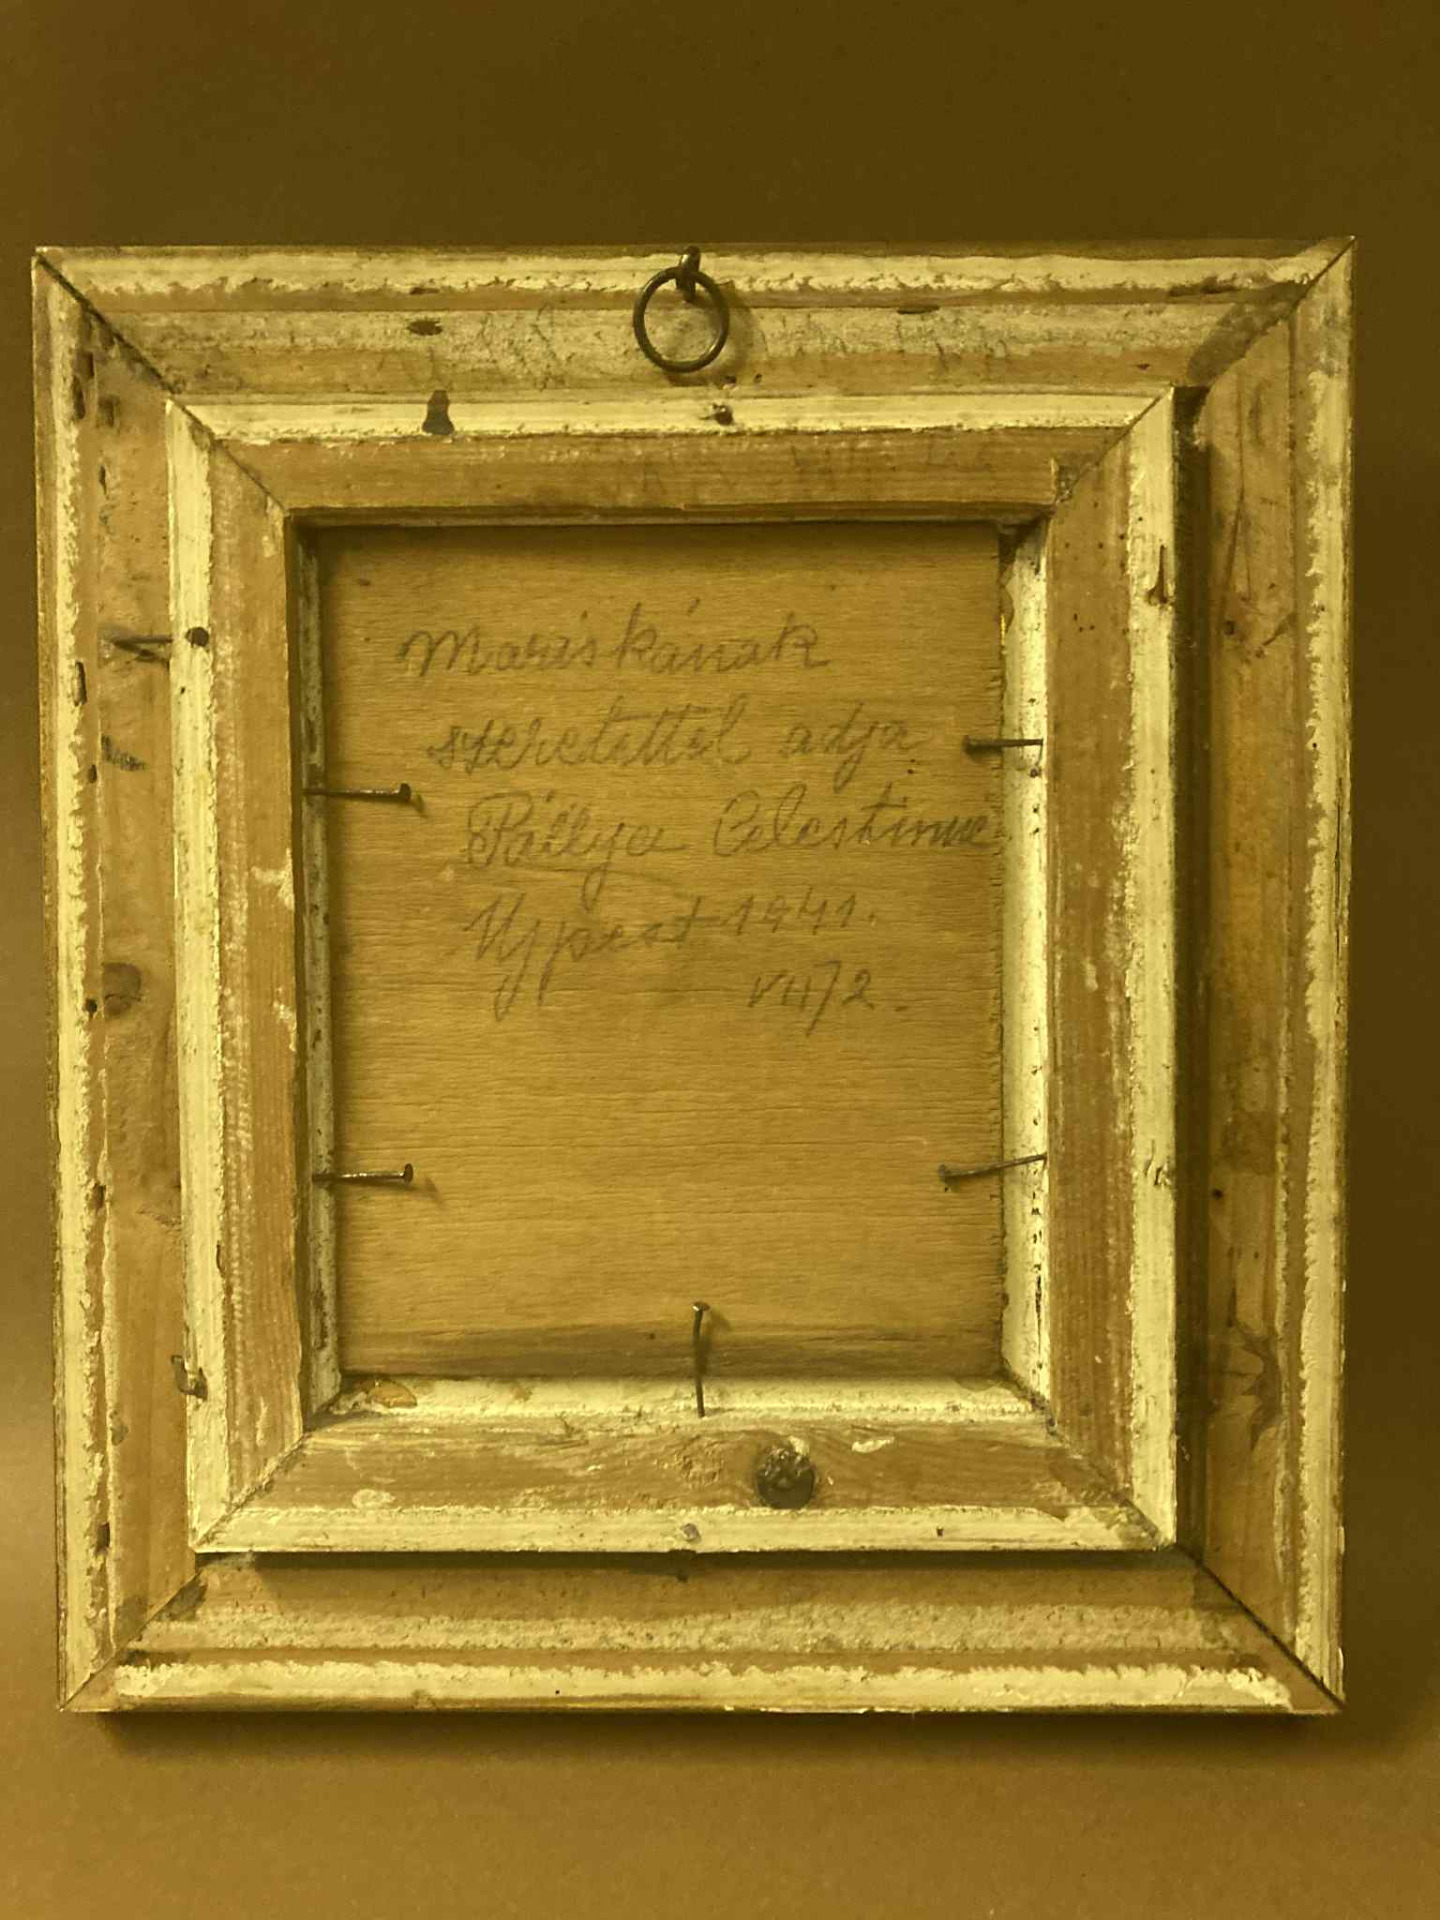 Mariskának
szeretettel adja
Pállya Celestinné
Ujpest 1941.
VII/2.